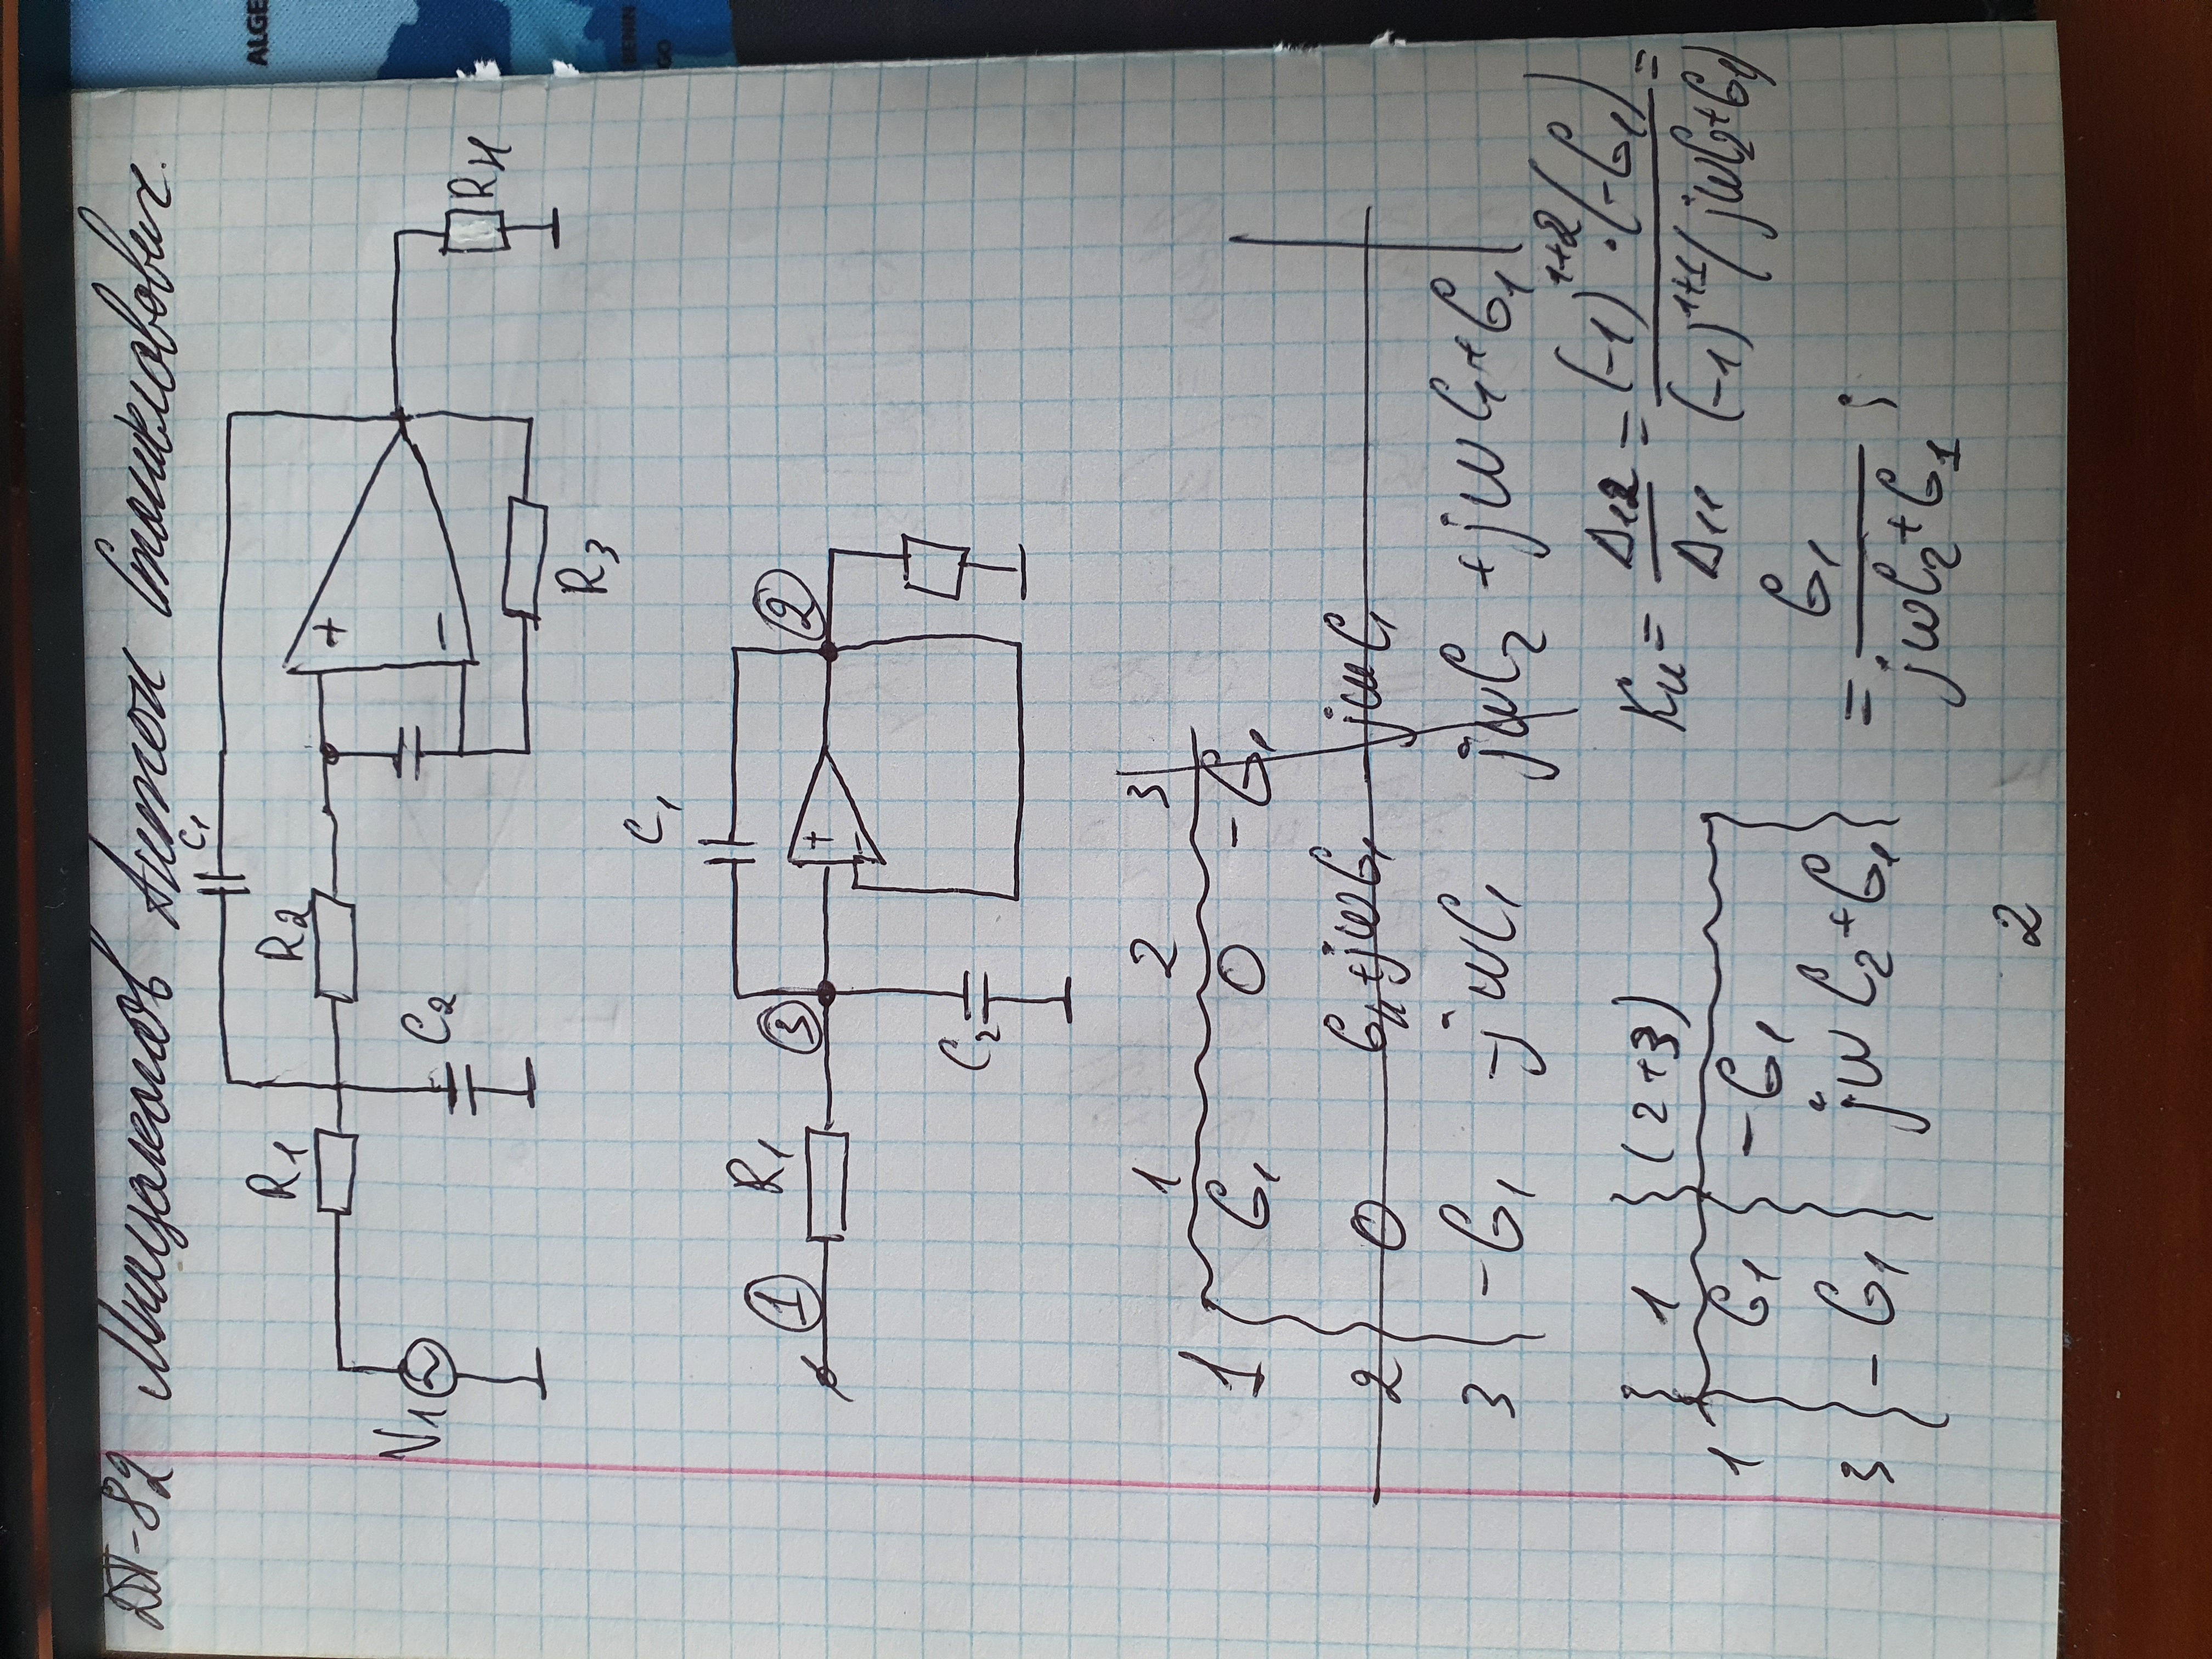 ДП-82 Мнацаканов Антон Станиславович.
C₁
R1 R2
+
V1 C2
−
RН
R3
C₁
① R₁ ③ ②
+
−
C₂
1 2 3
1 G₁ 0 -G₁
2 0 Gн+jωG₁ -jωC₁
3 -G₁ -jωC₁ jωC₂ +jωC₁+G₁
1 (2+3)
1 G₁ -G₁
3 -G₁ jωC₂+G₁
Kи = Δ12/Δ11 = (-1)^1+2·(-G₁)/(-1)^1+1(jωC₂+G₁) =
= G₁/jωC₂+G₁ ;
2
ALGE
BENIN
GO